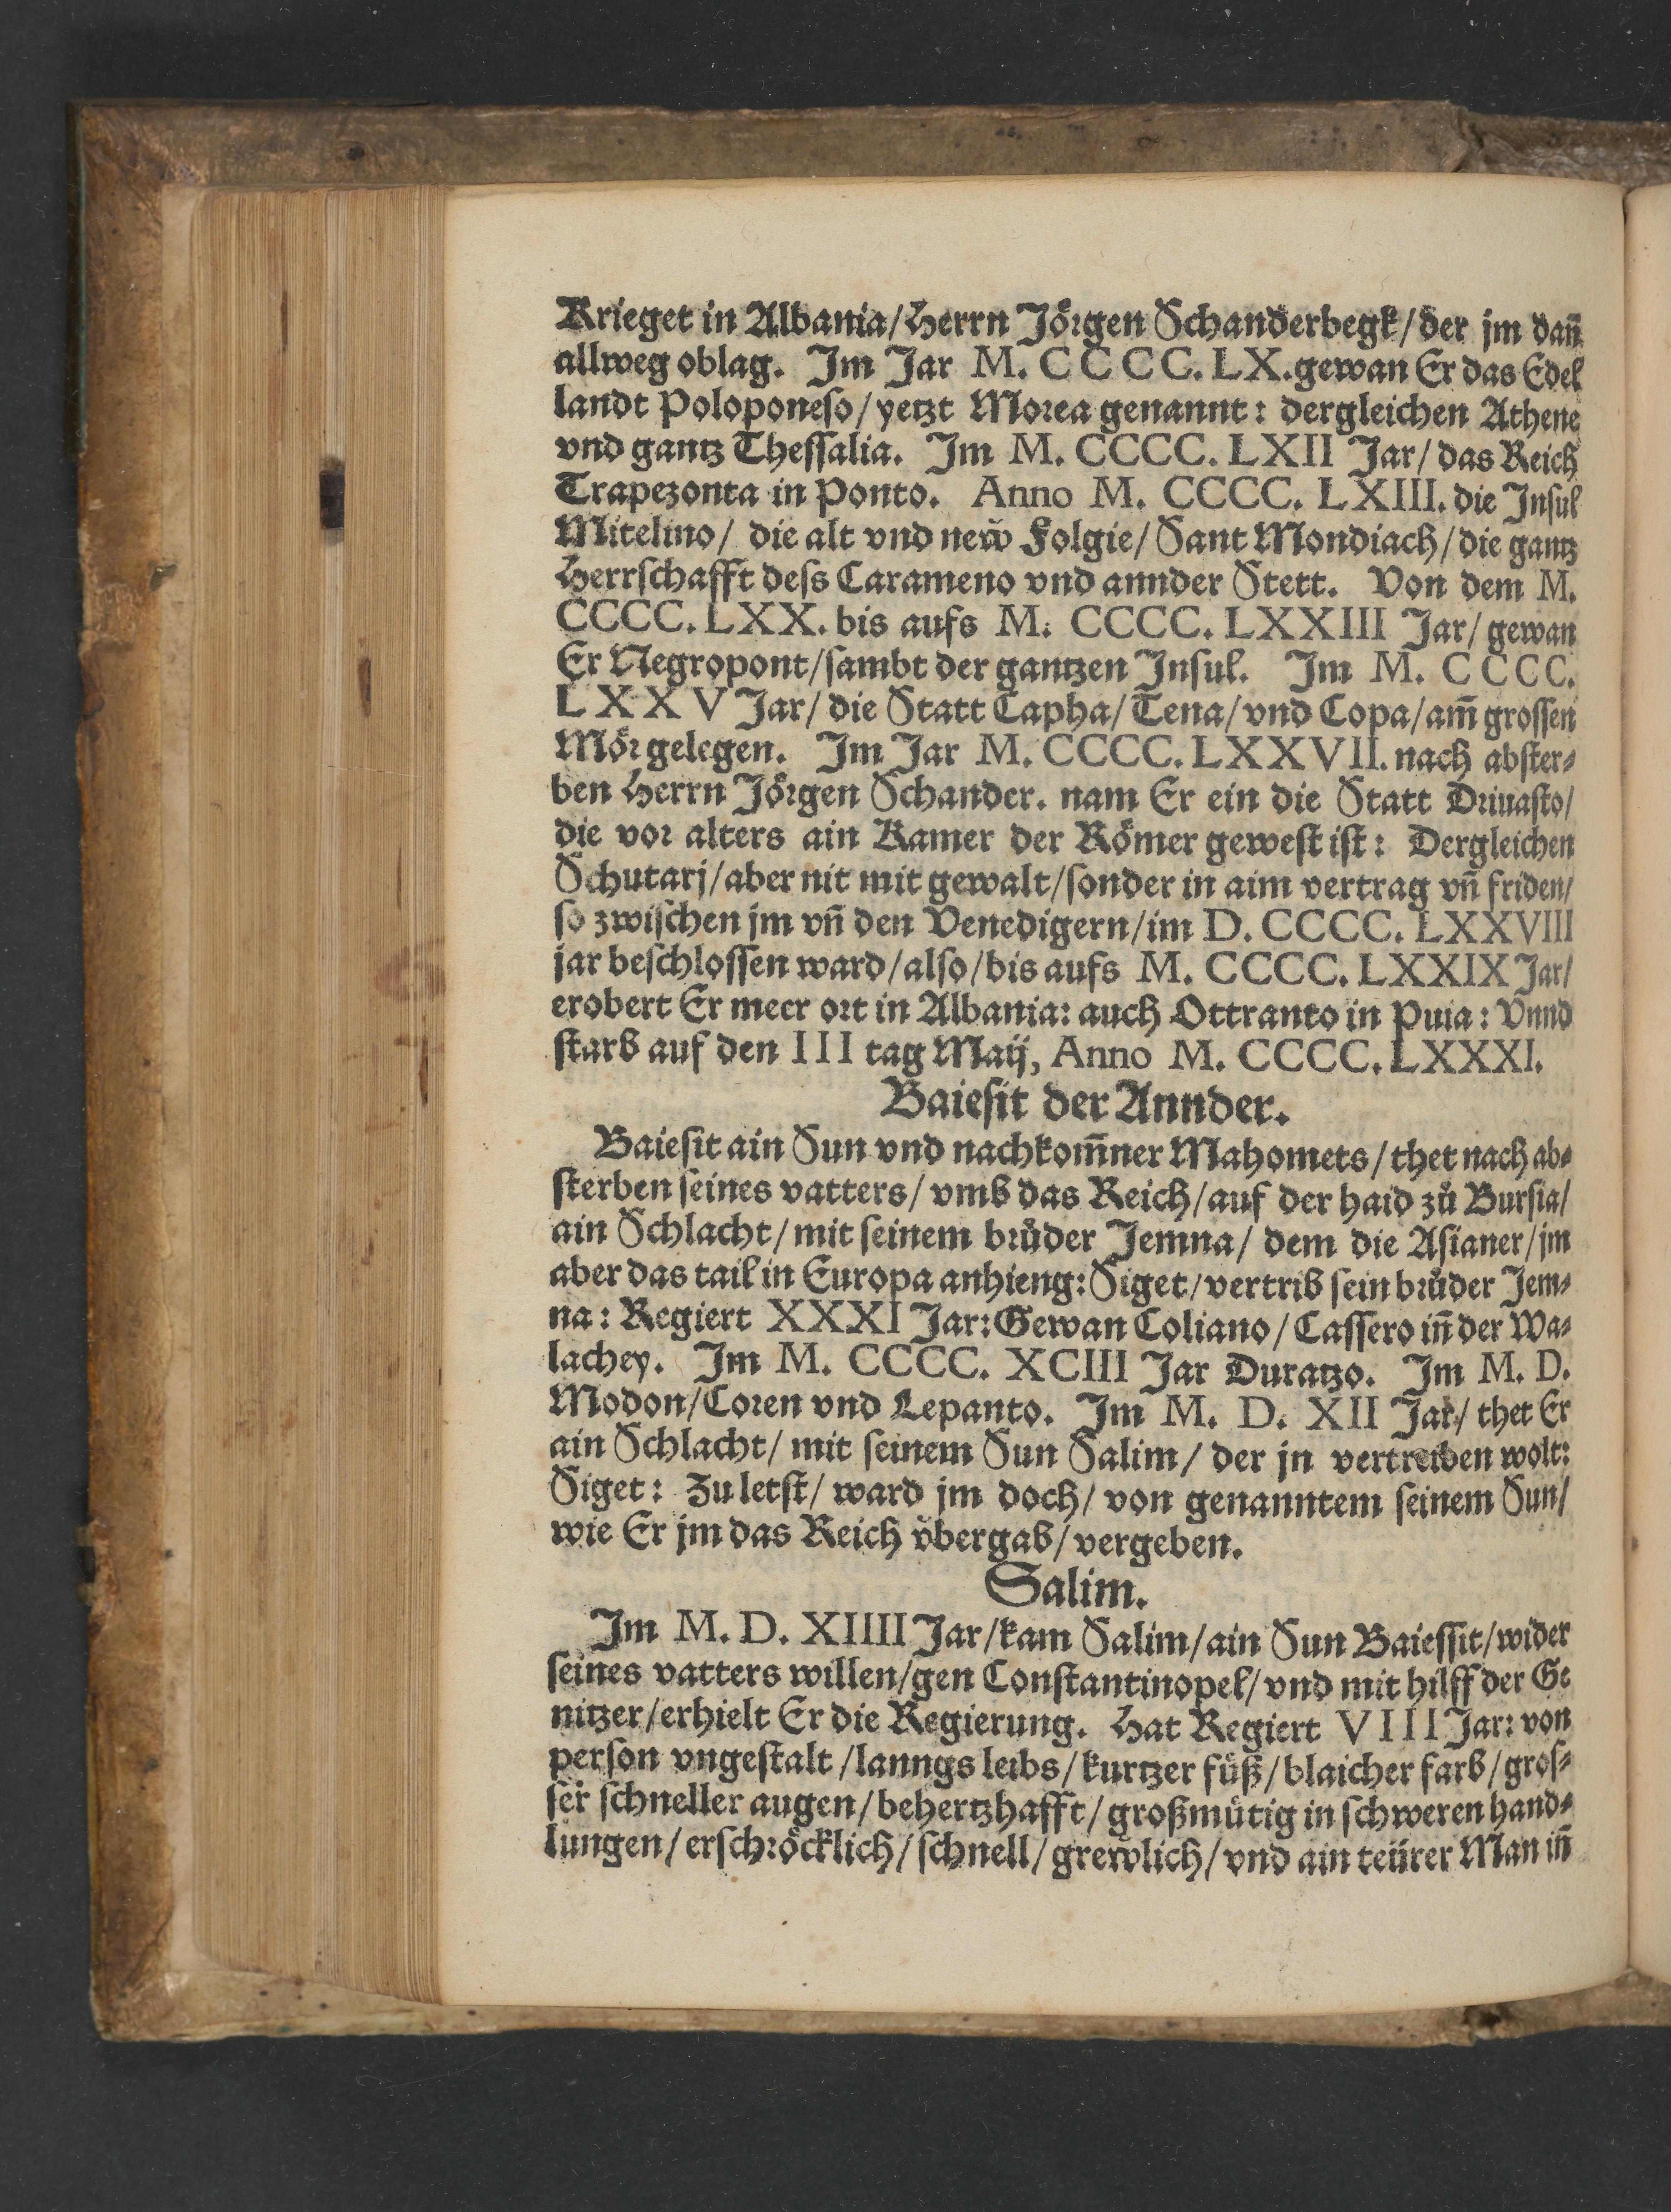 Krieget in Albania/Herrn Jörgen Schanderbegk/der jm dañ
allweg oblag. Im Jar M. CCCC. LX. gewan Er das Edel
landt Poloponeso/yetzt Morea genannt: dergleichen Athene
vnd gantz Thessalia. Im M. CCCC. LXII Jar/das Reich
Trapezonta in Ponto. Anno M. CCCC. LXIII. die Insul
Mitelino/ die alt vnd new Folgie/Sant Mondiach/die gantz
Herrschafft dess Carameno vnd annder Stett. Von dem M.
CCCC. LXX. bis aufs M. CCCC. LXXIII Jar/gewan
Er Negropont/sambt der gantzen Insul. Im M. CCCC.
LXXV Jar/die Statt Capha/Tena/vnd Copa/am̃ grossen
Mör gelegen. Im Jar M. CCCC. LXXVII. nach abster⸗
ben Herrn Jörgen Schander. nam Er ein die Statt Driuasto/
die vor alters ain Kamer der Römer gewest ist: Dergleichen
Schutarj/aber nit mit gewalt/sonder in aim vertrag vñ friden/
so zwischen jm vñ den Venedigern/im D. CCCC. LXXVIII
jar beschlossen ward/also/bis aufs M. CCCC. LXXIX Jar/
erobert Er meer ort in Albania: auch Ottranto in Puia: Vnnd
starb auf den III tag Maij, Anno M. CCCC. LXXXI.
Baiesit der Annder.
Baiesit ain Sun vnd nachkom̃ner Mahomets/thet nach ab⸗
sterben seines vatters/vmb das Reich/auf der haid zů Bursia/
ain Schlacht/mit seinem brůder Jemna/ dem die Asianer/jm
aber das tail in Europa anhieng: Siget/vertrib sein brůder Jem⸗
na: Regiert XXXI Jar: Gewan Coliano/Cassero iñ der Wa⸗
lachey. Im M. CCCC. XCIII Jar Duratzo. Im M. D.
Modon/Coren vnd Lepanto. Im M. D. XII Jar/ thet Er
ain Schlacht/ mit seinem Sun Salim/ der jn vertreiben wolt:
Siget: Zu letst/ ward jm doch/ von genanntem seinem Sun/
wie Er jm das Reich vbergab/vergeben.
Salim.
Im M. D. XIIII Jar/kam Salim/ain Sun Baiessit/wider
seines vatters willen/gen Constantinopel/vnd mit hilff der Ge
nitzer/erhielt Er die Regierung. Hat Regiert VIII Jar: von
person vngestalt/lanngs leibs/kurtzer füß/blaicher farb/gros⸗
ser schneller augen/behertzhafft/großmütig in schweren hand⸗
lungen/erschröcklich/schnell/grewlich/vnd ain teürer Man iñ